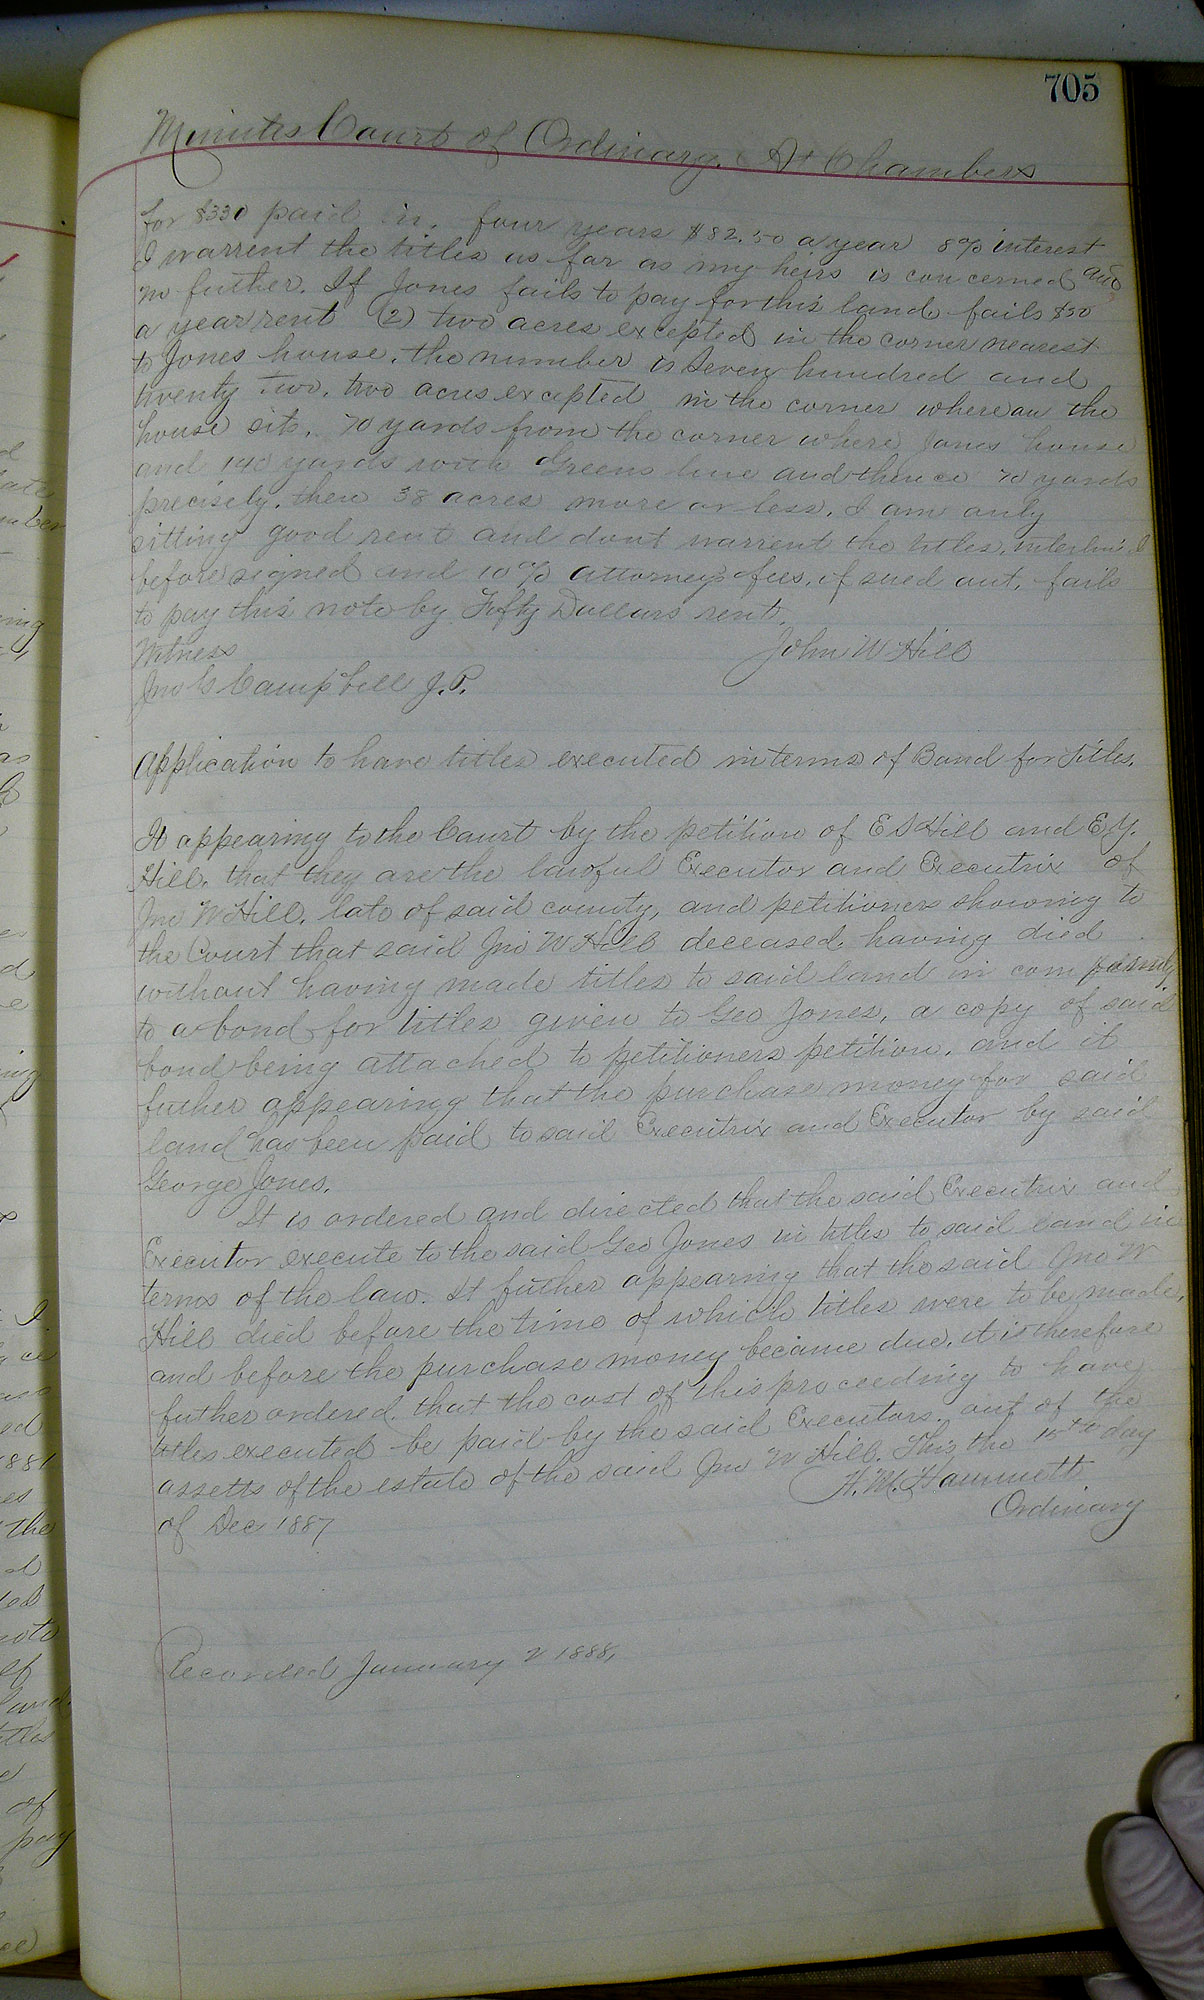 705
Minutes Court of Ordinary. At Chambers
for $330 paid in four years $82.50 a year 8% interest
I warrent the titles as far as my heirs is concerned and
no futher. If Jones fails to pay for this land fails $50
a year rent (2) two acres excepted in the corner nearest
to Jones house. the number is Seven hundred and
twenty two. two acres excepted in the corner whereon the
house sits. 70 yards from the corner where Jones house
and 140 yards with Greens line and thence 70 yards
precisely. then 38 acres more or less. I am only
sitting good rent and dont warrent the titles. interlined
before signed and 10% attorneys fees, if sued out. fails
to pay this note by Fifty Dollars rent.
Witness John W Hill
Jno C Campbell J.P.
Application to have titles executed in terms of Bond for Titles.
It appearing to the Court by the petition of E S Hill and E.Y.
Hill. that they are the lawful Executor and Executrix of
Jno W Hill, late of said county, and petitioners showing to
the Court that said Jno W Hill deceased having died
without having made titles to said land in com
to a bond for titles given to Geo Jones, a copy of said
bond being attached to petitioners petition. and it
futher appearing that the purchase money for said
land has been paid to said Executrix and Executor by said
George Jones.
It is ordered and directed that the said Executrix and
Executor execute to the said Geo Jones in titles to said land in
terms of the law. It futher appearing that the said Jno W
Hill died before the time of which titles were to be made,
and before the purchase money became due. it is therefore
futher ordered. that the cost of this proceeding to have
titles executed be paid by the said Executors. out of the
assetts of the estate of the said Jno W Hill. This the 15th day
of Dec 1887 H. M. Hammett
Ordinary
Recorded January 2 1888,